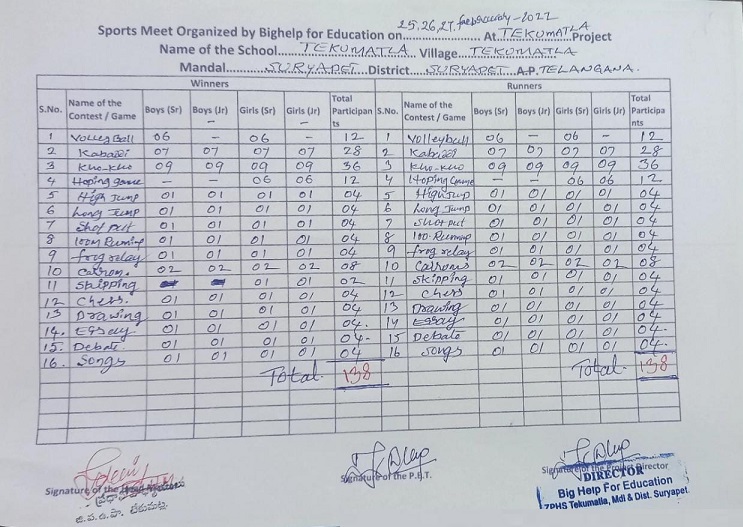 Sports Meet Organized by Bighelp for Education on 25,26,27, February-2022 At TEKUMATLA Project
Name of the School TEKUMATLA Village TEKUMATLA
Mandal SURYAPET District SURYAPET A.P. TELANGANA.
Winners Runners
S.No. Name of the Contest / Game Boys (Sr) Boys (Jr) Girls (Sr) Girls (Jr) Total Participants S.No. Name of the Contest / Game Boys (Sr) Boys (Jr) Girls (Sr) Girls (Jr) Total Participants
1 Volley Ball 06 – 06 – 12 1 Volleyball 06 – 06 – 12
2 Kabaddi 07 07 07 07 28 2 Kabaddi 07 07 07 07 28
3 Kho-Kho 09 09 09 09 36 3 Kho-Kho 09 09 09 09 36
4 Hoping game – – 06 06 12 4 Hoping Game – – 06 06 12
5 High Jump 01 01 01 01 04 5 High Jump 01 01 01 01 04
6 Long Jump 01 01 01 01 04 6 Long Jump 01 01 01 01 04
7 Shot put 01 01 01 01 04 7 Shot put 01 01 01 01 04
8 100m Runing 01 01 01 01 04 8 100. Runing 01 01 01 01 04
9 frog relay 01 01 01 01 04 9 frog relay 01 01 01 01 04
10 Carroms 02 02 02 02 08 10 Carroms 02 02 02 02 08
11 Skipping 01 01 02 11 Skipping 01 01 01 01 04
12 Chess. 01 01 01 01 04 12 Chess 01 01 01 01 04
13 Drawing 01 01 01 01 04 13 Drawing 01 01 01 01 04
14. Essay 01 01 01 01 04. 14 Essay 01 01 01 01 04.
15. Debate 01 01 01 01 04- 15 Debate 01 01 01 01 04-
16. Songs 01 01 01 01 04 16 Songs 01 01 01 01 04.
Total. 138 Total. 138
Signature of the Head Master
Signature of the P.E.T.
Signature of the Project Director
DIRECTOR
Big Help For Education
ZPHS Tekumatla, Mdl & Dist. Suryapet.